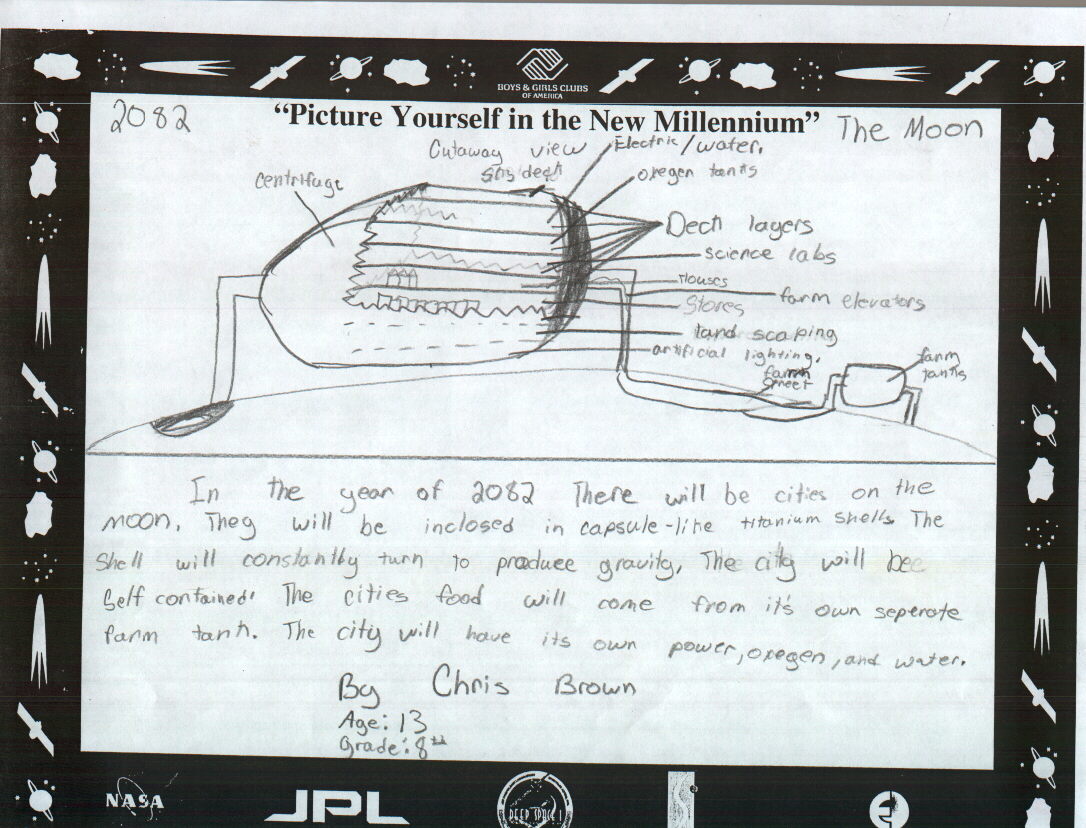 BOYS & GIRLS CLUBS
OF AMERICA
2082
"Picture Yourself in the New Millennium"
The Moon
Cutaway view
Electric/water.
oxegen tanks
centrifuge
Deck layers
science labs
Houses
farm elevators
Stores
land scaping
artificial lighting.
farm
street
farm
tanks
In the year of 2082 There will be cities on the
moon. They will be inclosed in capsule-like titanium shells The
Shell will constantly turn to produce gravity. The city will bee
Self contained. The cities food will come from it's own seperate
farm tank. The city will have its own power, oxegen, and water.
By Chris Brown
Age: 13
Grade: 8th
NASA
JPL
DEEP SPACE 1